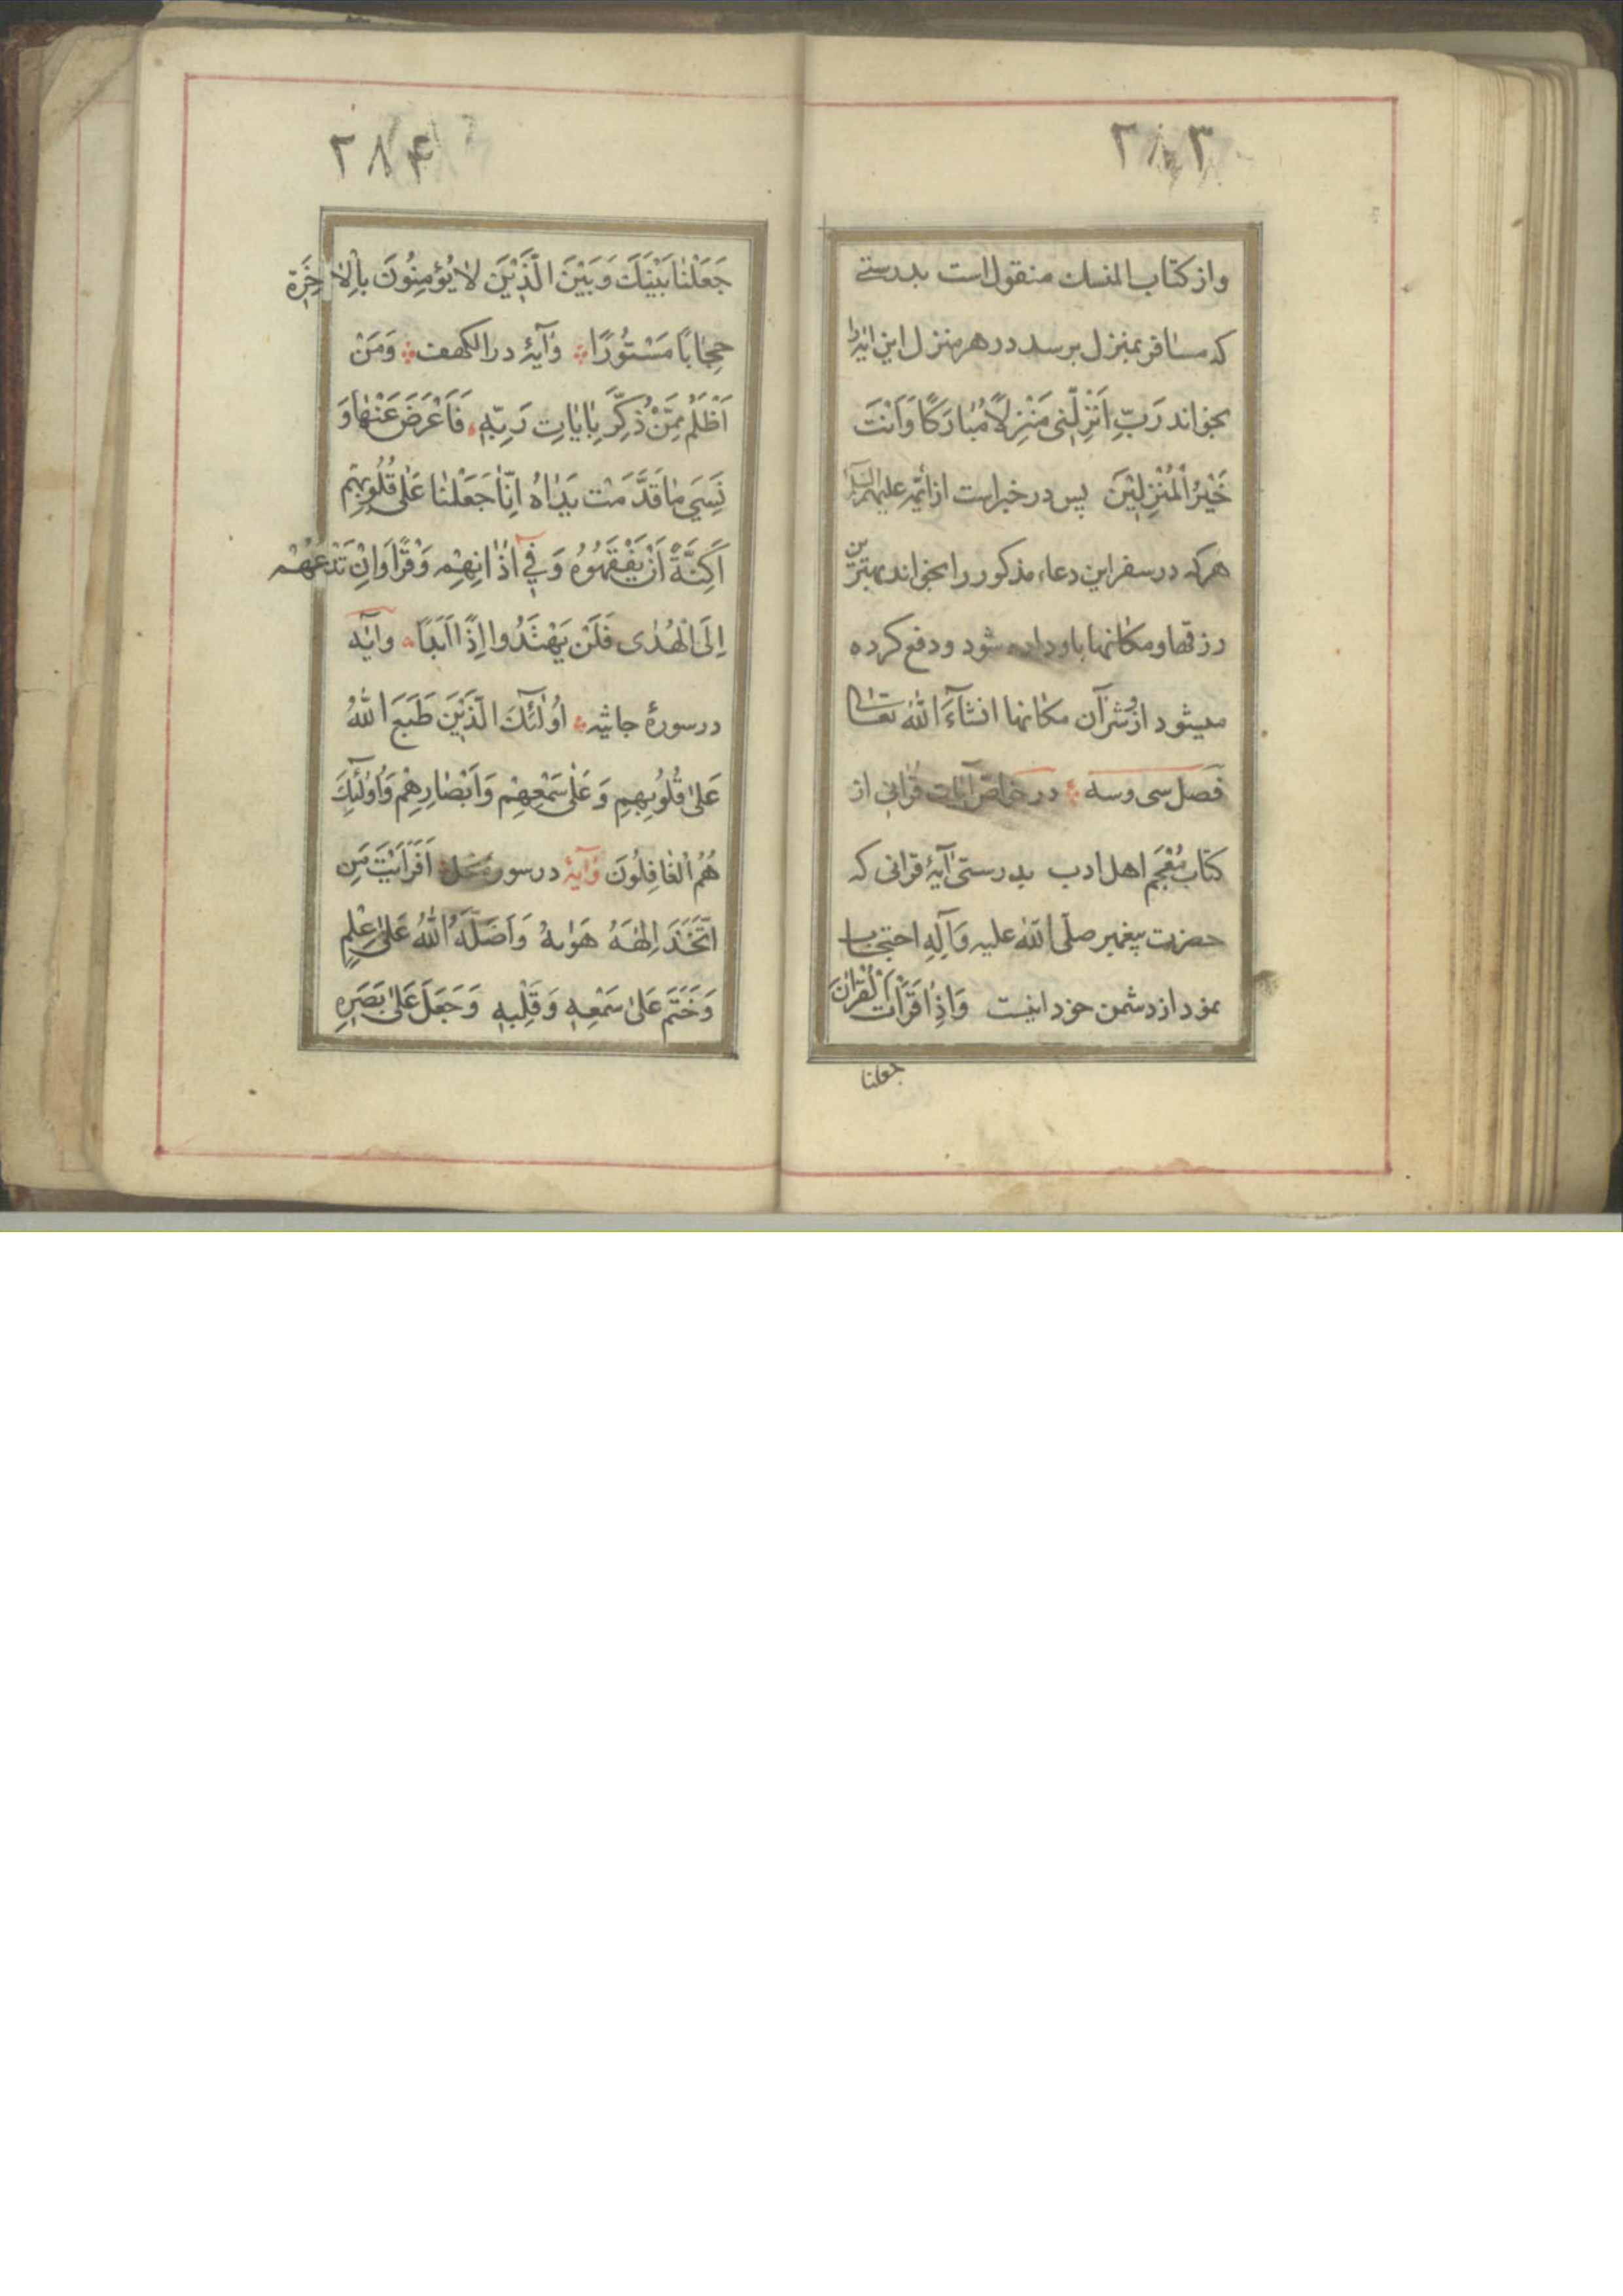 ۲۸۳
واز کتاب المنسک منقول است بدرستے
که مسافر بمنزل برسد در هر منزل این ایه را
بخواند رَبِّ اَنْزِلْنی مَنْزِلاً مُبٰارَکًا وَاَنْتَ
خَیْرُ الْمُنْزِلیٖنَ پس در خبر است از ائمه علیهم السلام
هرکه در سفر این دعاء مذکور را بخواند بهترین
رزقها ومکانها باو داده شود ودفع کرده
میشود از شر آن مکانها انشآءَ اللّٰه تعالی
فصل سی وسه در خواصّ آیات قرآنی از
کتاب مُعْجَم اهل ادب بدرستی آیهٔ قرانی که
حضرت پیغمبر صلّی اللّٰه علیه وَآلِهِ احتجاب
نمود از دشمن خود اینست وَاِذٰا قَرَأْتَ الْقُرْاٰنَ
جعلنا
۲۸۴
جَعَلْنٰا بَیْنَکَ وَبَیْنَ الَّذٖیْنَ لاٰ یُؤمِنُونَ بِالْاٰخِرَةِ
حِجٰابًا مَسْتُورًا وآیهٔ در الکهف وَمَنْ
اَظْلَمُ مِمَّنْ ذُکِّرَ بِاٰیٰاتِ رَبِّهٖ فَاَعْرَضَ عَنْهٰا وَ
نَسِیَ مٰا قَدَّمَتْ یَدٰاهُ اِنّٰا جَعَلْنٰا عَلٰی قُلُوبِهِمْ
اَکِنَّةً اَنْ یَفْقَهُوهُ وَفیٖ اٰذٰانِهِمْ وَقْرًا وَاِنْ تَدْعُهُمْ
اِلَی الْهُدٰی فَلَنْ یَهْتَدُوا اِذًا اَبَدًا وایٰه
در سورهٔ جاثیه اُولٰئِکَ الَّذٖیْنَ طَبَعَ اللّٰهُ
عَلیٰ قُلُوبِهِمِ وَعَلٰی سَمْعِهِمْ وَاَبْصٰارِهِمْ وَاُولٰئِکَ
هُمُ الْغٰافِلُونَ وآیهٔ در سوره نحل اَفَرَاَیْتَ مَنِ
اتَّخَذَ اِلٰهَهُ هَوٰیهُ وَاَضَلَّهُ اللّٰهُ عَلیٰ عِلْمٍ
وَخَتَمَ عَلیٰ سَمْعِهٖ وَقَلْبِهٖ وَجَعَلَ عَلیٰ بَصَرِهِ